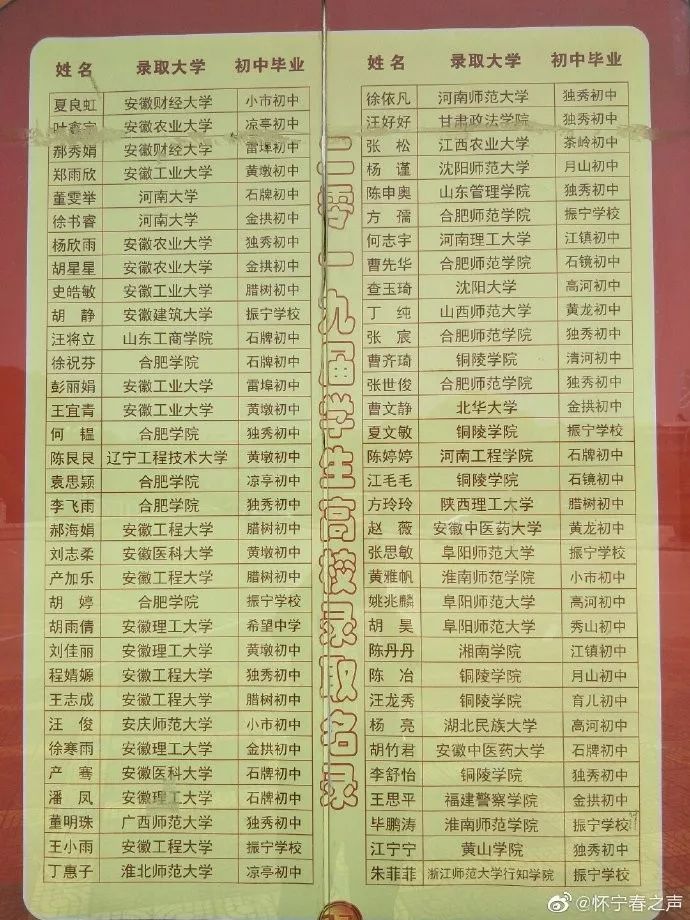 姓名 录取大学 初中毕业
夏良虹 安徽财经大学 小市初中
叶鑫宇 安徽农业大学 凉亭初中
郝秀娟 安徽财经大学 雷埠初中
郑雨欣 安徽工业大学 黄墩初中
董雯举 河南大学 石牌初中
徐书睿 河南大学 金拱初中
杨欣雨 安徽农业大学 独秀初中
胡星星 安徽农业大学 金拱初中
史皓敏 安徽工业大学 腊树初中
胡静 安徽建筑大学 振宁学校
汪将立 山东工商学院 石牌初中
徐祝芬 合肥学院 石牌初中
彭丽娟 安徽工业大学 雷埠初中
王宜青 安徽工业大学 黄墩初中
何韫 合肥学院 独秀初中
陈艮艮 辽宁工程技术大学 黄墩初中
袁思颖 合肥学院 凉亭初中
李飞雨 合肥学院 独秀初中
郝海娟 安徽工程大学 腊树初中
刘志柔 安徽医科大学 黄墩初中
产加乐 安徽工程大学 腊树初中
胡婷 合肥学院 振宁学校
胡雨倩 安徽理工大学 希望中学
刘佳丽 安徽理工大学 黄墩初中
程婧嫄 安徽工程大学 独秀初中
王志成 安徽工程大学 腊树初中
汪俊 安庆师范大学 小市初中
徐寒雨 安徽理工大学 金拱初中
产骞 安徽医科大学 石牌初中
潘凤 安徽理工大学 石牌初中
董明珠 广西师范大学 独秀初中
王小雨 安徽工程大学 振宁学校
丁惠子 淮北师范大学 凉亭初中
二零一九届学生高校录取名录
姓名 录取大学 初中毕业
徐依凡 河南师范大学 独秀初中
汪好好 甘肃政法学院 独秀初中
张松 江西农业大学 茶岭初中
杨谨 沈阳师范大学 月山初中
陈申奥 山东管理学院 独秀初中
方孺 合肥师范学院 振宁学校
何志宇 河南理工大学 江镇初中
曹先华 合肥师范学院 石镜初中
查玉琦 沈阳大学 高河初中
丁纯 山西师范大学 黄龙初中
张宸 合肥师范学院 独秀初中
曹齐琦 铜陵学院 清河初中
张世俊 合肥师范学院 独秀初中
曹文静 北华大学 金拱初中
夏文敏 铜陵学院 振宁学校
陈婷婷 河南工程学院 石牌初中
江毛毛 铜陵学院 石镜初中
方玲玲 陕西理工大学 腊树初中
赵薇 安徽中医药大学 黄龙初中
张思敏 阜阳师范大学 振宁学校
黄雅帆 淮南师范学院 小市初中
姚兆麟 阜阳师范大学 高河初中
胡昊 阜阳师范大学 秀山初中
陈丹丹 湘南学院 江镇初中
陈冶 铜陵学院 月山初中
汪龙秀 铜陵学院 育儿初中
杨亮 湖北民族大学 高河初中
胡竹君 安徽中医药大学 石牌初中
李舒怡 铜陵学院 独秀初中
王思平 福建警察学院 金拱初中
毕鹏涛 淮南师范学院 振宁学校
江宁宁 黄山学院 独秀初中
朱菲菲 浙江师范大学行知学院 振宁学校
@怀宁春之声